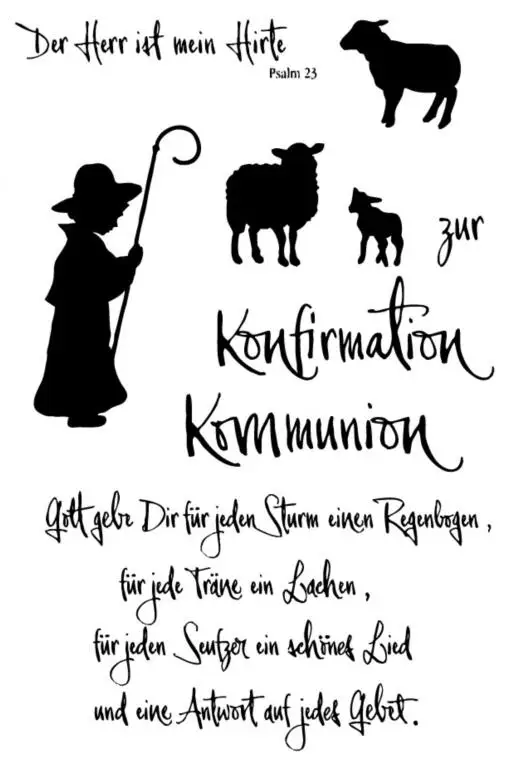 Der Herr ist mein Hirte
Psalm 23
zur
Konfirmation
Kommunion
Gott gebe Dir für jeden Sturm einen Regenbogen,
für jede Träne ein Lachen,
für jeden Seufzer ein schönes Lied
und eine Antwort auf jedes Gebet.